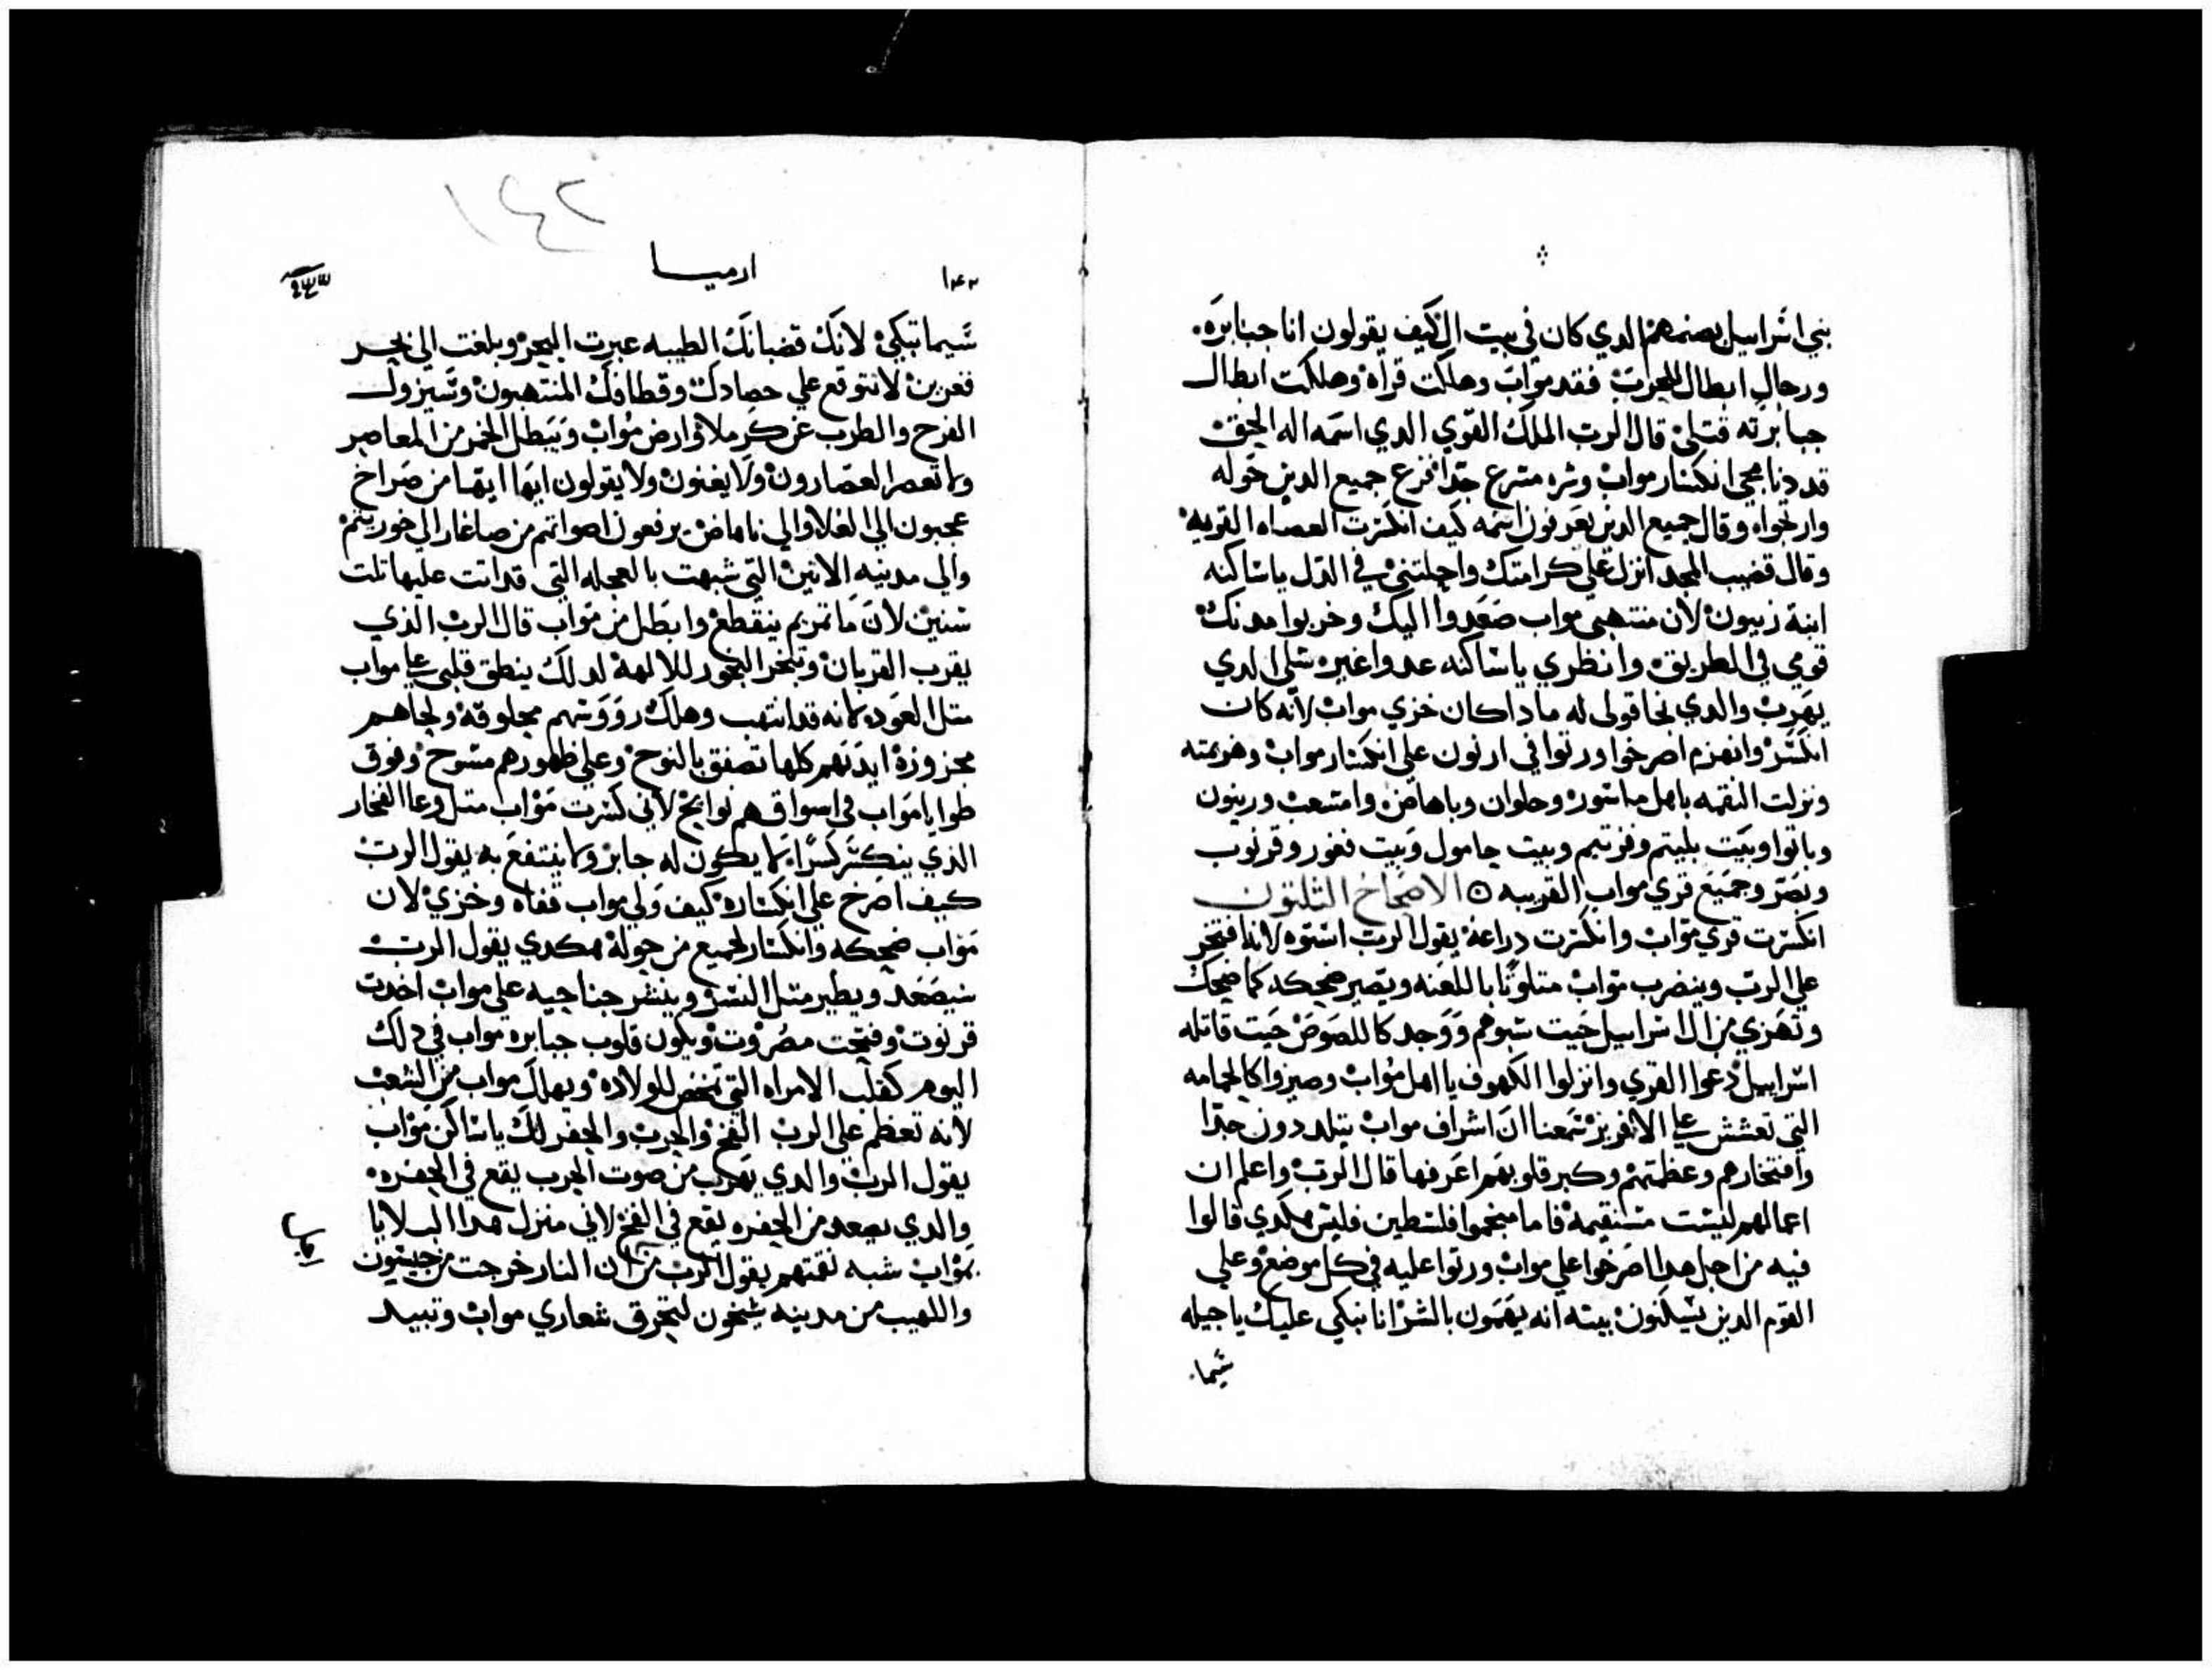 بني اسراييل بصنمهم الدي كان في بيت ال كيف يقولون انا جبابره
ورجال ابطال للحرب فقد مواب وهلكت قراه وهلكت ابطال
جبابرته قتلي قال الرب الملك القوي الدي اسمه اله الحق
قد دنا مجي انكسار مواب وشره مسرع جدا فزع جميع الدين حوله
وارتجوا وقال جميع الدين يعرفون اسمه كيف انكسرت العصاه القويه
وقال قضيب المجد انزل علي كرامتك واجلسي في الدل يا ساكنه
ابنة زيبون لان منتهبي مواب صعدوا اليك وخربوا مدنك
قومي في الطريق وانظري يا ساكنه عدواعير سلي الدي
يهرب والدي نجا قولي له مادا كان خزي مواب لانه كان
انكسر وانهزم اصرخوا ورتوا في ارنون علي انكسار مواب وهزيمته
ونزلت النقمه باهل ماسور وحلوان وباهاص وامتعب ورينون
وباتوا وبيت بليتم وقرتيم وبيت جامول وبيت فغور وقرنوب
وبصر وجميع قري مواب القريبه الاصحاح الثلثون
انكسرت قري مواب وانكسرت دراعه يقول الرب اسدوه لانه افتخر
علي الرب وينضرب مواب متلوثا باللعنه ويصير ضحكه كما ضحك
وتهزي من ال اسراييل حيت سبوهم ووجد كاللصوص حيت قاتله
اسراييل دعوا القري وانزلوا الكهوف يا اهل مواب وصيروا كالحمامه
التي تعشش علي الافريز سمعنا ان اشراف مواب يتلددون جدا
وافتخارهم وعظمتهم وكبر قلوبهم اعرفها قال الرب واعلم ان
اعمالهم ليست مستقيمة فاما منجموا فلسطين فليس هكدي قالوا
فيه من اجل هدا اصرخوا علي مواب ورتوا عليه في كل موضع وعلي
القوم الدين يسكنون بيته انه يهتمون بالشر انا نبكي عليك يا جبله
سيما
١٤٢
١٤٢ ارميا
سيما تبكي لانك قضبانك الطيبه عبرت البحر وبلغت الي بحر
فعزين لانتوقع علي حصادك وقطافك المنتهبون وسيزول
الفرح والطرب عن كرملا وارض مواب ويبطل الخمر من المعاصر
ولا تعصر العصارون ولا يغنون ولا يقولون ايها ايها من صراخ
عجبون الي الغلا والي ناماص يرفعون اصواتهم من صاغار الي خورينم
والي مدينه الانين التي شبهت بالعجله التي قد اتت عليها تلت
سنين لان ما تمريم ينقطع وابطل من مواب قال الرب الذي
يقرب القربان ويبخر البخور للالهة لدلك ينطق قلبي علي مواب
متل العود لانه قد انتهب وهلك رووسهم محلوقة ولحاهم
مجزوزة ايديهم كلها تصفق بالنوح وعلي ظهورهم مسوح وفوق
طوايا مواب في اسواقهم نوايح لاني كسرت مواب متل وعا الفخار
الذي ينكسر كسرا لا يكون له جابر ولا ينتفع به يقول الرب
كيف اصرخ علي انكساره كيف ولي مواب قفاه وخزي لان
مواب ضحكه وانكسار لجميع من حوله هكدي يقول الرب
سيصعد ويطير متل النسر وينشر جناحيه علي مواب اخدت
قرنوت وفتحت مصروت ويكون قلوب جبابره مواب في دلك
اليوم كقلب الامراه التي تمخض للولاده ويهلك مواب من الشعب
لانه تعظم علي الرب الفخ والحرب والحفر لك يا ساكن مواب
يقول الرب والدي يهرب من صوت الحرب يقع في الحفره
والدي يصعد من الحفره يقع في الفخ لاني منزل هدا البلايا
بمواب شبه نقمتهم يقول الرب من ان النار خرجت من حبسون
واللهيب من مدينه سيحون ليحرق شعاري مواب وتبيد